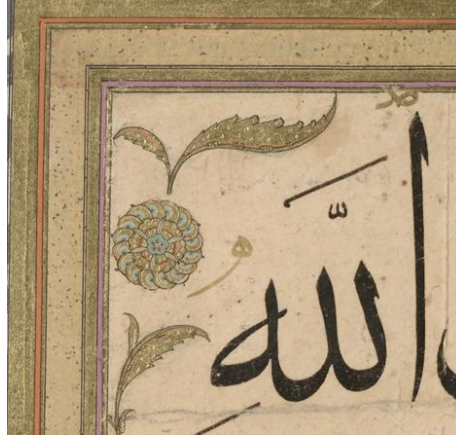 اللَّه